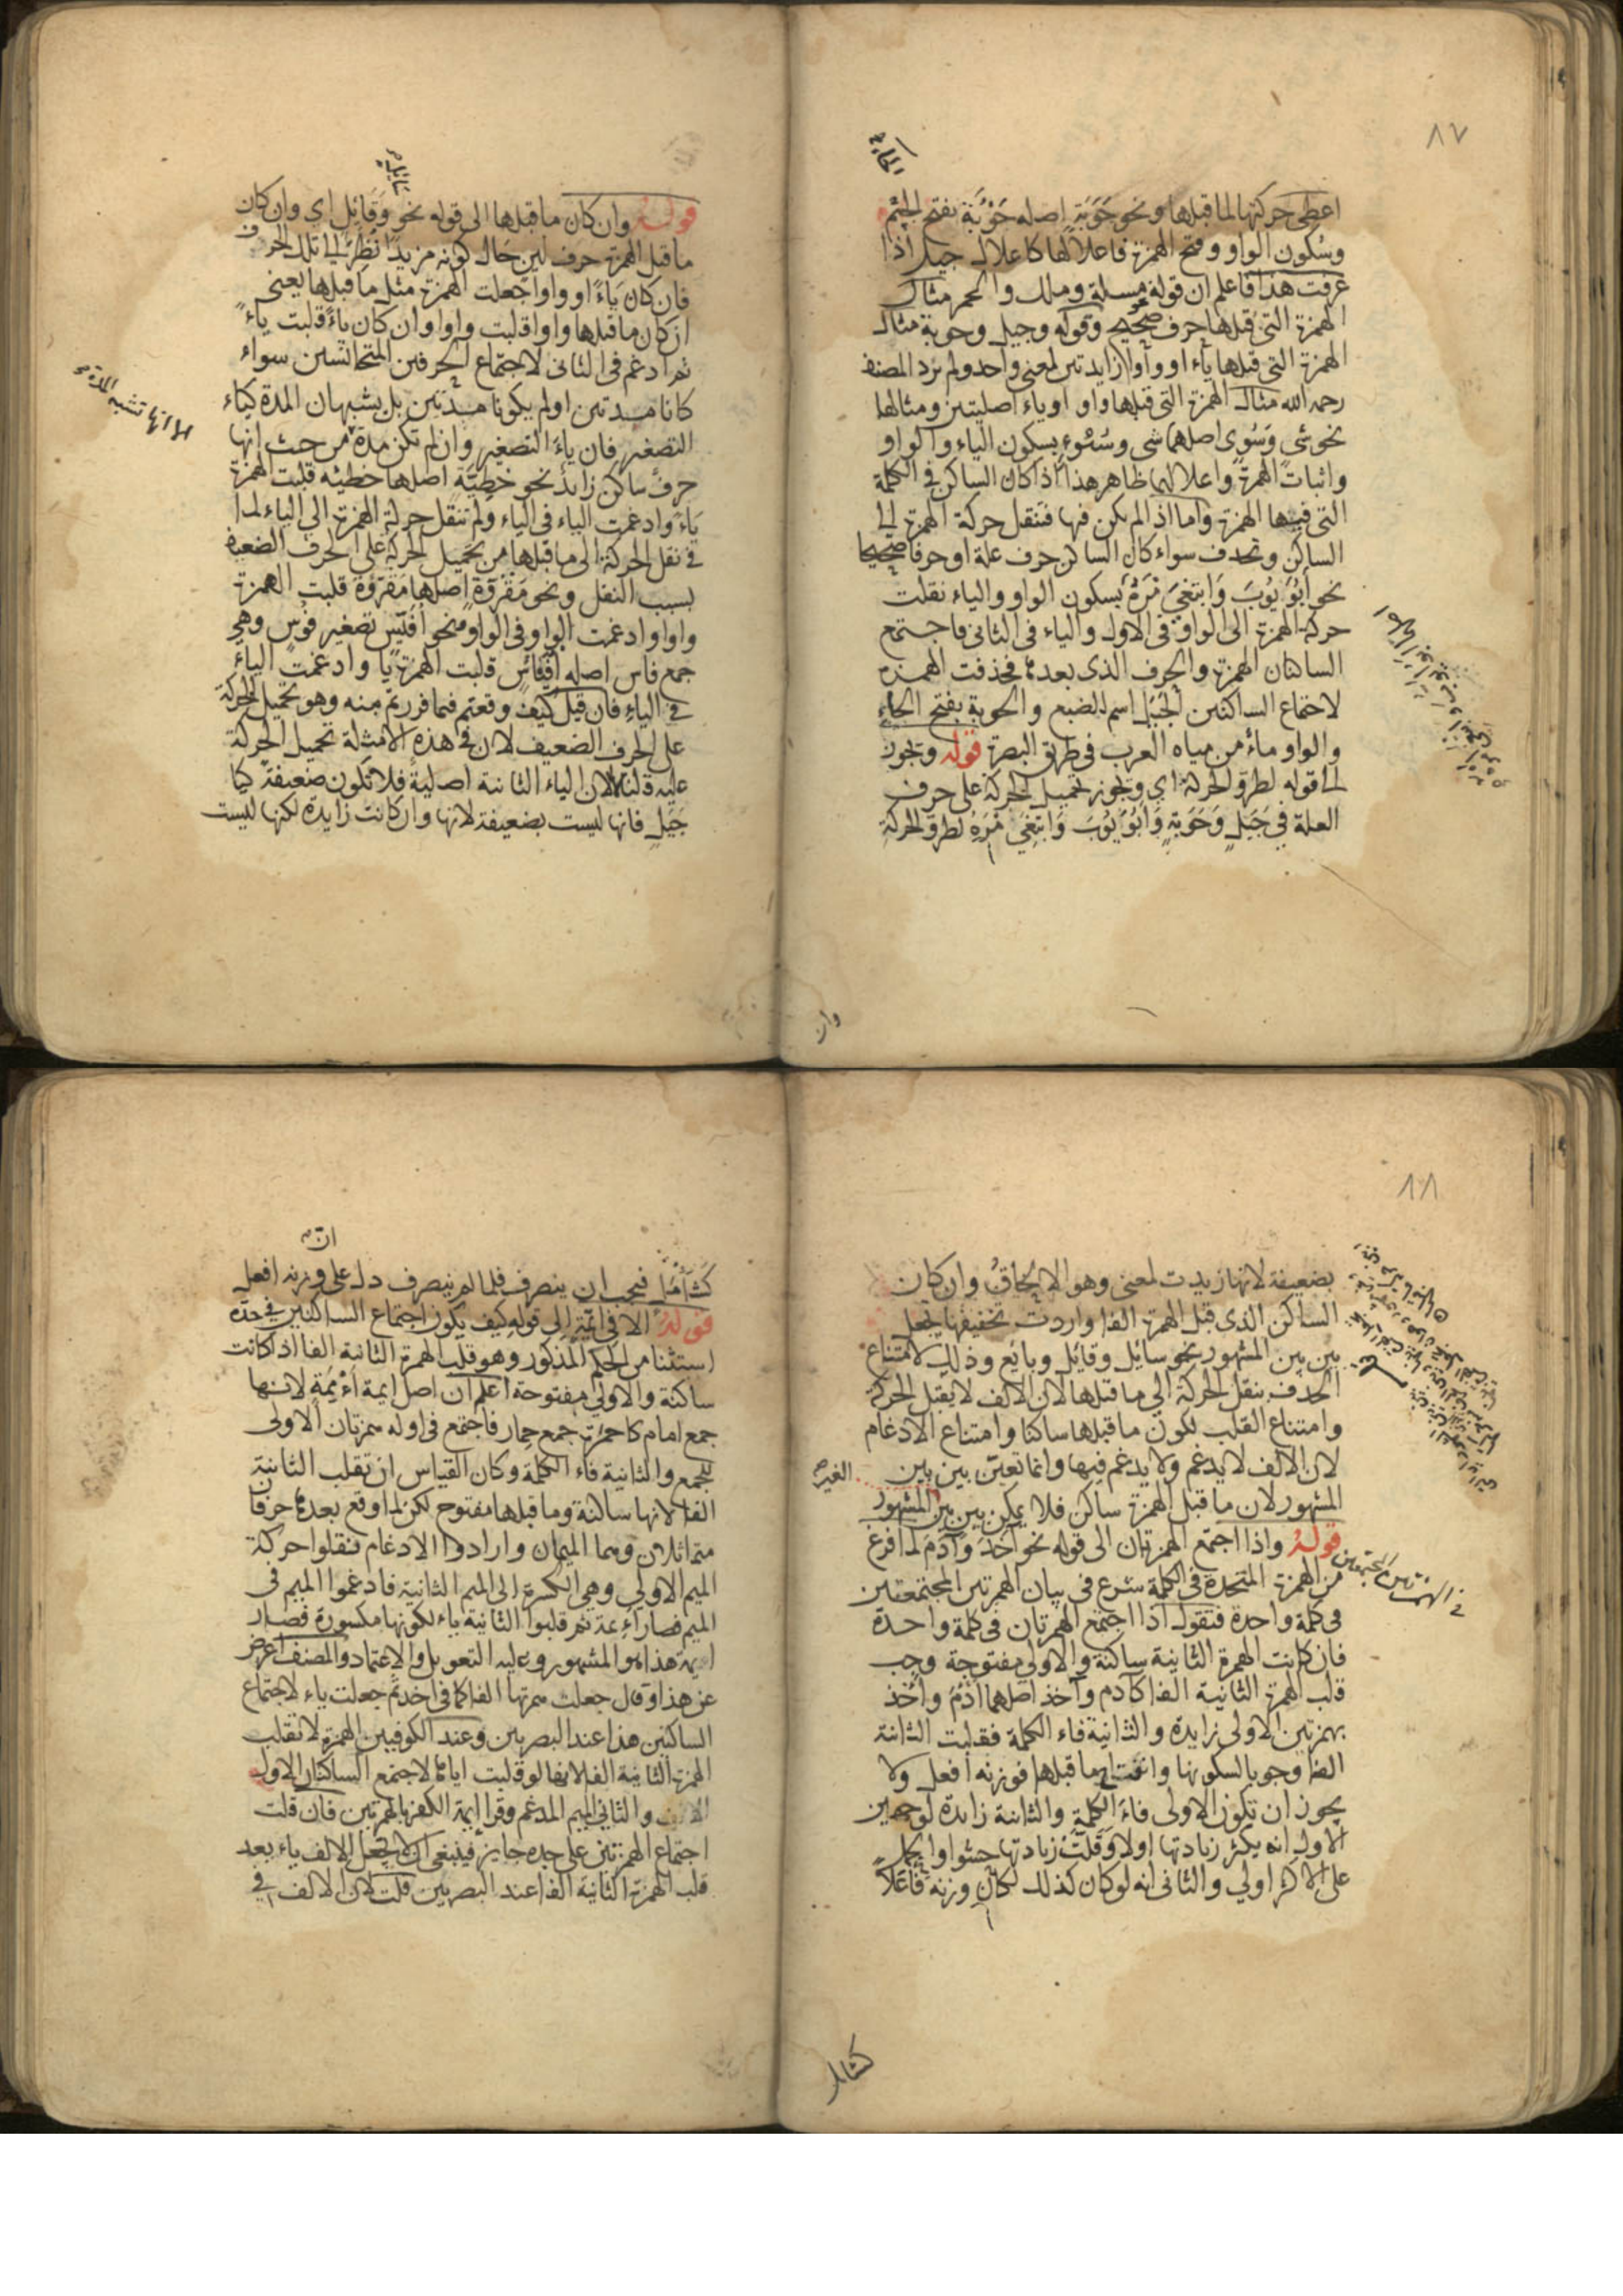 ٨٧
اعطى حركتها لما قبلها ونحو حَوَبَة اصله حَوْبَة بفتح
وسكون الواو وفتح الهمزة فاعلالها كاعلال جيل اذا
عرفت هذا فاعلم ان قوله مسلة وملك والحمر مثال
الهمزة التى قبلها حرف صحيح وقوله وجيل وحوبة مثال
الهمزة التى قبلها ياء او واوا زايدتين لمعنى واحد ولم يرد المصنف
رحمه الله مثال الهمزة التى قبلها واو او ياء اصليتين ومثالها
نحو شى وسُوى اصلهما شى وسُوْء بسكون الياء والواو
واثبات الهمزة واعلالهما ظاهر هذا اذا كان الساكن فى الكلمة
التى فيها الهمزة واما اذا لم يكن فيها فتنقل حركة الهمزة الى
الساكن وتحذف سواء كان الساكن حرف علة او حرفا صحيحا
نحو ابُو يُوبَ وَابتغِىَ مْرَهُ بسكون الواو والياء نقلت
حركة الهمزة الى الواو فى الاول والياء فى الثانى فاجتمع
الساكنان الهمزة والحرف الذى بعدها فحذفت الهمزة
لاجتماع الساكنين الجَيَل اسم للضبع والحوبة بفتح الحاء
والواو ماء من مياه العرب فى طريق البصرة قوله ويجوز
الى قوله لطرو الحركة اى ويجوز تحميل الحركة على حرف
العلة فى جَيَلٍ وَحَوَبَةٍ وَابُوَ يُوبَ وَابتَغِىَ مْرَهُ لطرو الحركة
وان
قوله وان كان ما قبلها الى قوله نحو وَقَايِل اى وان كان
ما قبل الهمزة حرف لين حال كونه مزيدا نُظِرَ الى تلك الحرف
فان كان يَاءً او واوا جعلت الهمزة مثل ما قبلها يعنى
ان كان ما قبلها واوا قلبت واوا وان كان ياءً قلبت ياءً
ثم ادغم فى الثانى لاجتماع الحرفين المتجانسين سواء
كانا مدتين او لم يكونا مدتين بل يشبهان المدة كياء
التصغير فان ياءَ التصغير وان لم تكن مدة من حيث انها
الا انها تشبه المدة
حرف ساكن زايد نحو خطِيَّة اصلها خطيئه قلبت الهمزة
يَاءً وادغمت الياء فى الياء ولم تنقل حركة الهمزة الى الياء لما
فى نقل الحركة الى ما قبلها من تحميل الحركة على الحرف الضعيف
بسبب النقل ونحو مَقْرُوَّة اصلها مَقرُوءة قلبت الهمزة
واوا وادغمت الواو فى الواو ونحو اُفَيِّس تصغير فُوس وهى
جمع فاس اصله اُفَيْاس قلبت الهمزة يا وادغمت الياءُ
فى الياء فان قيل كيف وقعتم فيما فررتم منه وهو تحميل الحركة
على الحرف الضعيف لان فى هذه الامثلة تحميل الحركة
عليه قلنا لان الياء الثانية اصلية فلا تكون ضعيفة كيا
جَيَلٍ فانها ليست بضعيفة لانها وان كانت زايدة لكنها ليست
٨٨
بضعيفة لانها زيدت لمعنى وهو الالحاقُ وان كان
الساكن الذى قبل الهمزة الفا واردت تخفيفها يجعل
بين بين المشهور نحو سائِل وقائِل وبائع وذلك لامتناع
الحذف بنقل الحركة الى ما قبلها لان الالف لا يقبل الحركة
وامتناع القلب لكون ما قبلها ساكنا وامتناع الادغام
لان الالف لا يدغم ولا يدغم فيها وانما تعيّن بين بين
المشهور لان ما قبل الهمزة ساكن فلا يمكن بين بين المشهور
الغير
قوله واذا اجتمع الهمزتان الى قوله نحو آخذ وآدَمَ لما فرغ
من الهمزة المتحدة فى الكلمة شرع فى بيان الهمزتين المجتمعتين
فى كلمة واحدة فنقول اذا اجتمع الهمزتان فى كلمة واحدة
فان كانت الهمزة الثانية ساكنة والاولى مفتوحة وجب
قلب الهمزة الثانية الفا كآدم وآخذ اصلهما اَأْدَمُ واأخذ
بهمزتين الاولى زايدة والثانية فاء الكلمة فقلبت الثانية
الفا وجوبا لسكونها وانفتاح ما قبلها فوزنه افعل ولا
يجوز ان تكون الاولى فاءَ الكلمةِ والثانية زايدة لوجهين
الاول انه يكثر زيادتها اولا وَقَلَّتْ زيادتها حشوا والحمل
على الاكثر اولى والثانى انه لو كان كذلك لكان وزنه فَاعَلاً
كشامل
كَشَاْمَل فيجب ان ينصرف فلما لم ينصرف دل على وزنه افعل
ان
قوله الا فى ائِمَّة الى قوله كيف يكون اجتماع الساكنين فى حده
استثنا من الحكم المذكور وهو قلب الهمزة الثانية الفا اذا كانت
ساكنة والاولى مفتوحة اعلم ان اصل ايمة اءْمِمَة لانها
جمع امام كاحمِرَة جمع حِمار فاجتمع فى اوله همزتان الاولى
للجمع والثانية فاء الكلمة وكان القياس ان تقلب الثانية
الفا لانها ساكنة وما قبلها مفتوح لكن لما وقع بعدها حرفان
متماثلان وهما الميمان وارادوا الادغام فنقلوا حركة
الميم الاولى وهى الكسرة الى الميم الثانية فادغموا الميم فى
الميم فصار أءِمة ثم قلبوا الثانية ياء لكونها مكسورة فصار
ايمة هذا هو المشهور وعليه التعويل والاعتماد والمصنف اعرض
عن هذا وقال جعلت همزتها الفا كما فى اخذ ثم جعلت ياء لاجتماع
الساكنين هذا عند البصريين وعند الكوفيين الهمزة لا تقلب
الهمزة الثانية الفا لانها لو قلبت اياها لاجتمع الساكنان الاول
الالف والثانى الميم المدغم وقرا ايمة الكفر بالهمزتين فان قلت
اجتماع الهمزتين على حده جايز فينبغى ان لا يجعل الالف ياء بعد
قلب الهمزة الثانية الفا عند البصريين قلت لان الالف فى